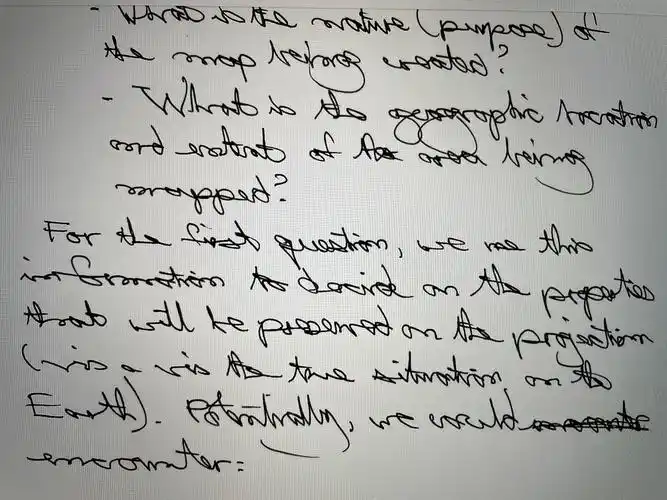 - What is the nature (purpose) of
the map being created?
- What is the geographic location
and extent of the area being
mapped?
For the first question, we use this
information to decide on the properties
that will be preserved on the projection
(vis a vis the true situation on the
Earth). Potentially, we could
encounter: